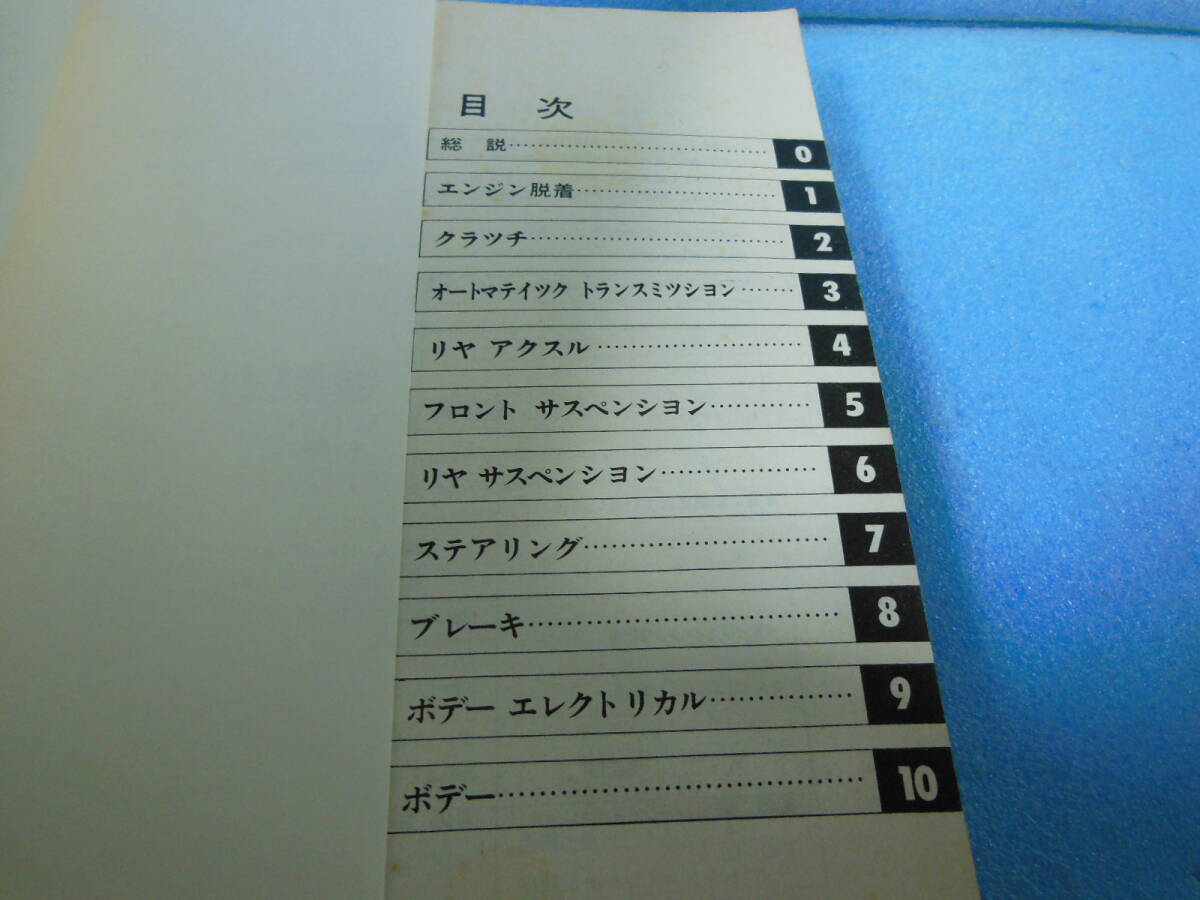 目 次
総 説 0
エンジン脱着 1
クラツチ 2
オートマテイツク トランスミツシヨン 3
リヤ アクスル 4
フロント サスペンシヨン 5
リヤ サスペンシヨン 6
ステアリング 7
ブレーキ 8
ボデー エレクトリカル 9
ボデー 10